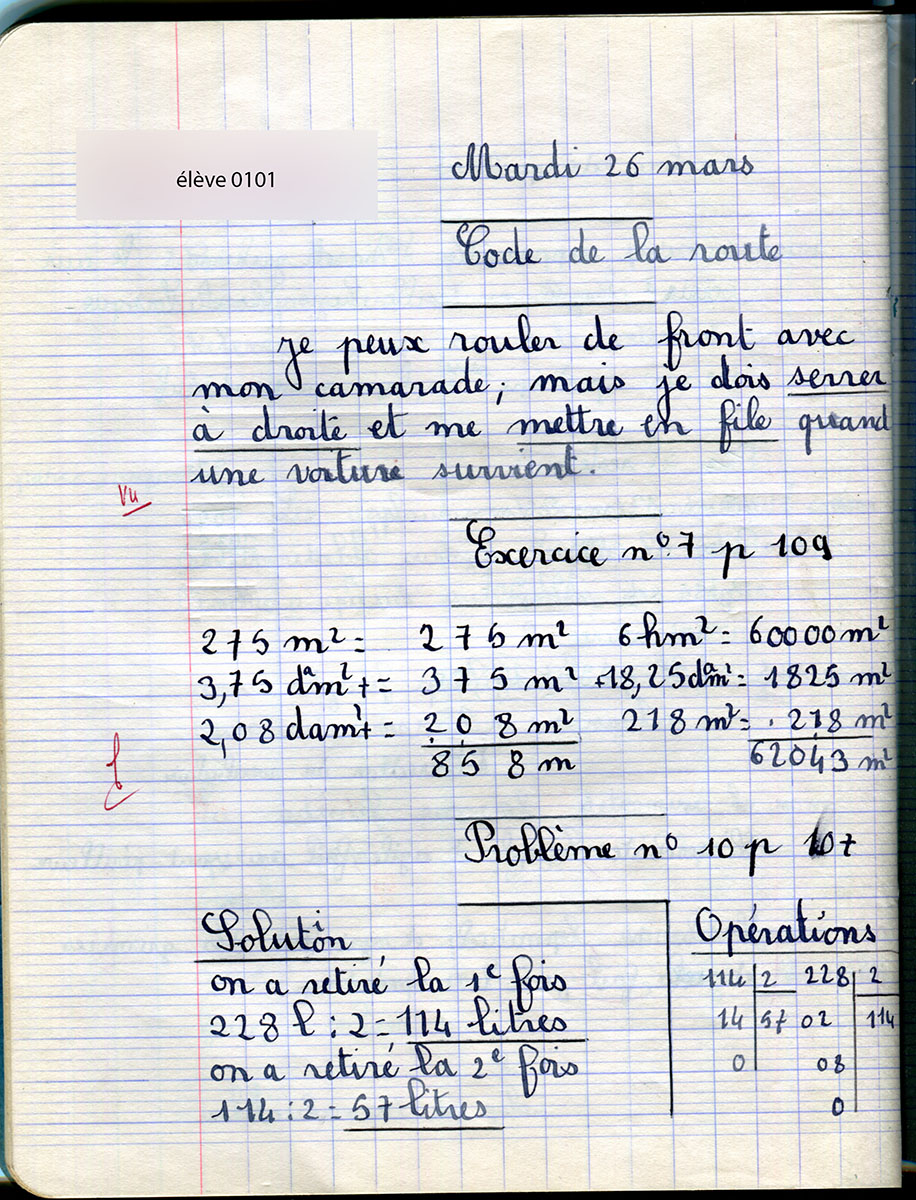 élève 0101
Mardi 26 mars
Code de la route
je peux rouler de front avec
mon camarade; mais je dois serrer
à droite et me mettre en file quand
une voiture survient.
Vu
Exercice n° 7 p 109
275 m² = 275 m² 6 hm² = 60000 m²
3,75 dam² + = 375 m² + 18,25 dam² = 1825 m²
2,08 dam² + = 208 m² 218 m² = . 218 m²
858 m 62043 m²
Problème n° 10 p 107
Soluton Opérations
on a retiré la 1e fois 114 2 228 2
228 l : 2 = 114 litres 14 57 02 114
on a retiré la 2e fois 0 08
114 : 2 = 57 litres 0